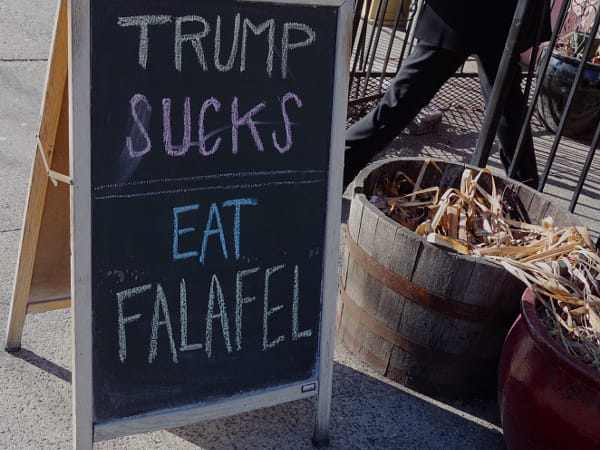 TRUMP
SUCKS
EAT
FALAFEL